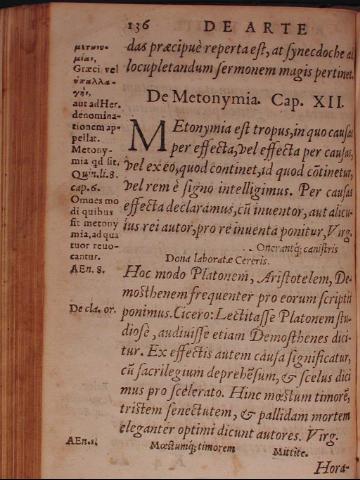 136 DE ARTE
das præcipuè reperta est, at synecdoche ad
locupletandum sermonem magis pertinet.
De Metonymia. Cap. XII.
MEtonymia est tropus, in quo causæ
per effecta, vel effecta per causas,
vel ex eo, quod continet, id quod cõtinetur,
vel rem è signo intelligimus. Per causas
effecta declaramus, cũ inuentor, aut alicu-
ius rei autor, pro re inuenta ponitur, Virg.
Onerantq; canistris
Dona laboratæ Cereris.
Hoc modo Platonem, Aristotelem, De-
mosthenem frequenter pro eorum scriptis
ponimus. Cicero: Lectitasse Platonem stu-
diosè, audiuisse etiam Demosthenes dici-
tur. Ex effectis autem causa significatur,
cũ sacrilegium deprehẽsum, & scelus dici
mus pro scelerato. Hinc mœstum timorẽ,
tristem senectutem, & pallidam mortem
eleganter optimi dicunt autores. Virg.
Mœstumq; timorem Mittite.
Hora-
metωνυ-
μίαν,
Græci vel
ὑπαλλα-
γὴν,
aut ad Her.
denomina-
tionem ap-
pellat.
Metony-
mia qd sit.
Quin. li. 8.
cap. 6.
Omnes mo
di quibus
fit metony
mia, ad qua
tuor reuo-
cantur.
AEn. 8.
De cla. or.
AEn. 1.